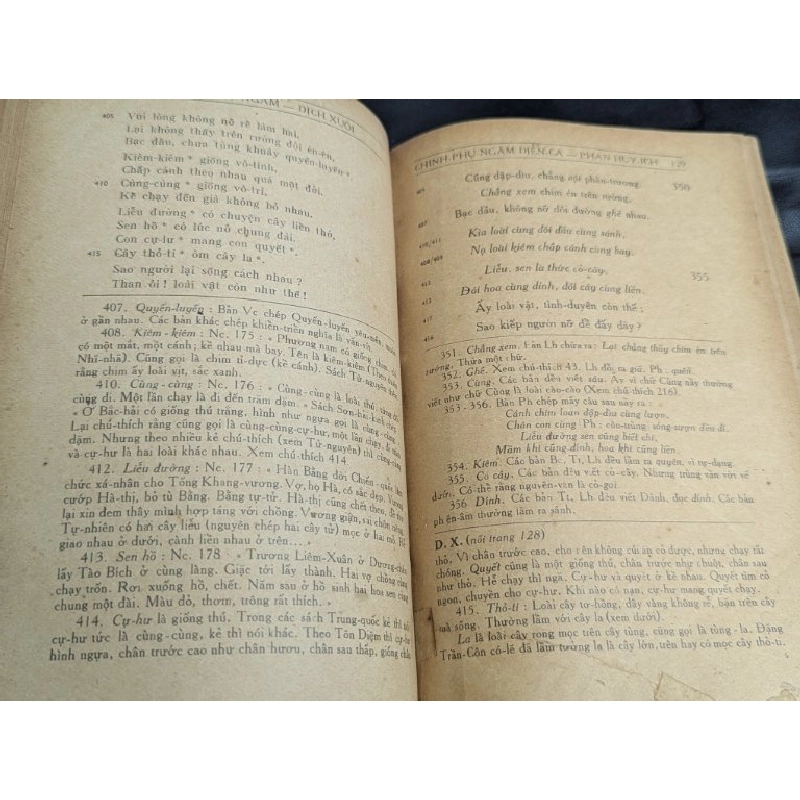 NGÂM — DỊCH XUÔI
405 Với lòng không nỡ rẽ làm hai,
Lại không thấy trên rường đôi én-én,
Bạc đầu, chưa từng khuấy quyến-luyến *.
Kiêm-kiêm * giống vô-tình,
Chắp cánh theo nhau quá một đời,
410 Cùng-cùng * giống vô-tri,
Kề chạy đến già không bỏ nhau.
Liễu đường * có chuyện cây liền thớ,
Sen hồ * có lúc nở chung đài.
Con cự-hư * mang con quyết *.
415 Cây thỏ-ti * ôm cây la *.
Sao người lại sống cách nhau ?
Than ôi ! loài vật còn như thế !
407. Quyến-luyến : Bản Vc chép Quyến-luyến yêu-mến,
ở gần nhau. Các bản khác chép khiển-triển nghĩa là vấn-vít.
408. Kiêm-kiêm : Nc. 175 : « Phương nam có giống chim,
có một mắt, một cánh; kề nhau mà bay. Tên là kiêm-kiêm (Theo
Nhĩ-nhã). Cũng gọi là chim tỉ-dực (kề cánh). Sách Từ-nguyên
rằng chim ấy loài vịt, sắc xanh.
410. Cùng-cùng : Nc. 176 : « Cùng-cùng là loài thú,
cùng đi. Một lần chạy là đi đến trăm dặm. » Sách Sơn-hải-kinh chép
« Ở Bắc-hải có giống thú trắng, hình như ngựa gọi là cùng-cùng. »
Lại chú-thích rằng cũng gọi là cùng-cùng-cự-hư, một lần chạy, đi
dặm. Nhưng theo nhiều kẻ chú-thích (xem Từ-nguyên) thì cùng-cùng
và cự-hư là hai loài khác nhau. Xem chú-thích 414
412. Liễu đường : Nc. 177 : « Hàn Bằng đời Chiến-quốc, làm
chức xá-nhân cho Tống Khang-vương. Vợ, họ Hà, có sắc đẹp, Vương
cướp Hà-thị, bỏ tù Bằng. Bằng tự-tử. Hà-thị cũng chết theo, để thư
lại xin đem thây mình hợp táng với chồng. Vương giận, sai chôn riêng.
Tự-nhiên có hai cây liễu (nguyên chép hai cây tử) mọc ở hai mồ, gốc
giao nhau ở dưới, cành liền nhau ở trên... »
413. Sen hồ : Nc. 178 « Trương Liêm-Xuân ở Dương-châu,
lấy Tào Bích ở cùng làng. Giặc tới lấy thành. Hai vợ chồng cùng
chạy trốn. Rơi xuống hồ, chết. Năm sau ở hồ sinh hai hoa sen cùng
chung một đài. Màu đỏ, thơm, trông rất thích. »
414. Cự-hư là giống thú. Trong các sách Trung-quốc kẻ thì nói
cự-hư tức là cùng-cùng, kẻ thì nói khác. Theo Tôn Diệm thì cự-hư
hình ngựa, chân trước cao như chân hươu, chân sau thấp, giống chân
CHINH-PHỤ NGÂM DIỄN-CA — PHAN HUY-ÍCH 129
Cũng dập-dìu, chẳng nội phân-trương. 350
Chẳng xem chim én trên rường,
Bạc đầu, không nỡ đôi đường ghẽ nhau.
400/411 Kìa loài cùng đôi đầu cùng sánh,
408/409 Nọ loài kiêm chắp cánh cùng bay.
Liễu, sen là thức cỏ-cây, 355
413 Đôi hoa cùng dính, đôi cây cùng liền.
417 Ấy loài vật, tình-duyên còn thế ;
416 Sao kiếp người nỡ để đấy đây ?
351. Chẳng xem. Bản Lh chữa ra : Lại chẳng thấy chim én trên
rường. Thừa một chữ.
352. Ghẽ. Xem chú-thích 43. Lh đều ra giá. Ph : quải.
353. Cùng. Các bản đều viết sáu. Ấy vì chữ Cùng này thường
viết như chữ Cùng là cỗi-cào (Xem chú-thích 216).
353-356. Bản Ph chép mấy câu sau này ra :
Cánh chim loan dập-dìu cùng lượn.
Chân con cùng (Ph : côn-trùng) sóng-sượn đều đi.
Liễu đường sen cũng biết chi,
Mầm khi cùng dính, hoa khi cùng liền.
354. Kiêm. Các bản Bc, Tì, Lh đều lầm ra quyên, vì tự-dạng.
355. Cỏ cây. Các bản đều viết cỏ-cây. Nhưng trùng vần với vế
dưới. Có thể rằng nguyên-văn là cỏ-gỗi.
356 Dính. Các bản Tì, Lh đều viết Dánh, đọc dính. Các bản
phiên-âm thường lầm ra sánh.
D. X. (nối trang 128)
thỏ. Vì chân trước cao, cho nên không cúi ăn cỏ được, nhưng chạy rất
chóng. Quyết cũng là một giống thú, chân trước như chuột, chân sau
như thỏ. Hễ chạy thì ngã. Cự-hư và quyết ở kề nhau. Quyết tìm cỏ
ngon, chuyền cho cự-hư. Khi nào có nạn, cự-hư mang quyết chạy.
415. Thỏ-ti : Loài cây tơ-hồng, dây vàng không rễ, bận trên cây
mà sống. Thường lầm với cây la (xem dưới).
La là loài cây rong mọc trên cây tùng, cũng gọi là tùng-la. Đặng
Trần-Côn có-lẽ đã lầm tưởng la là cây lớn, trên hay có mọc cây thỏ-ti.